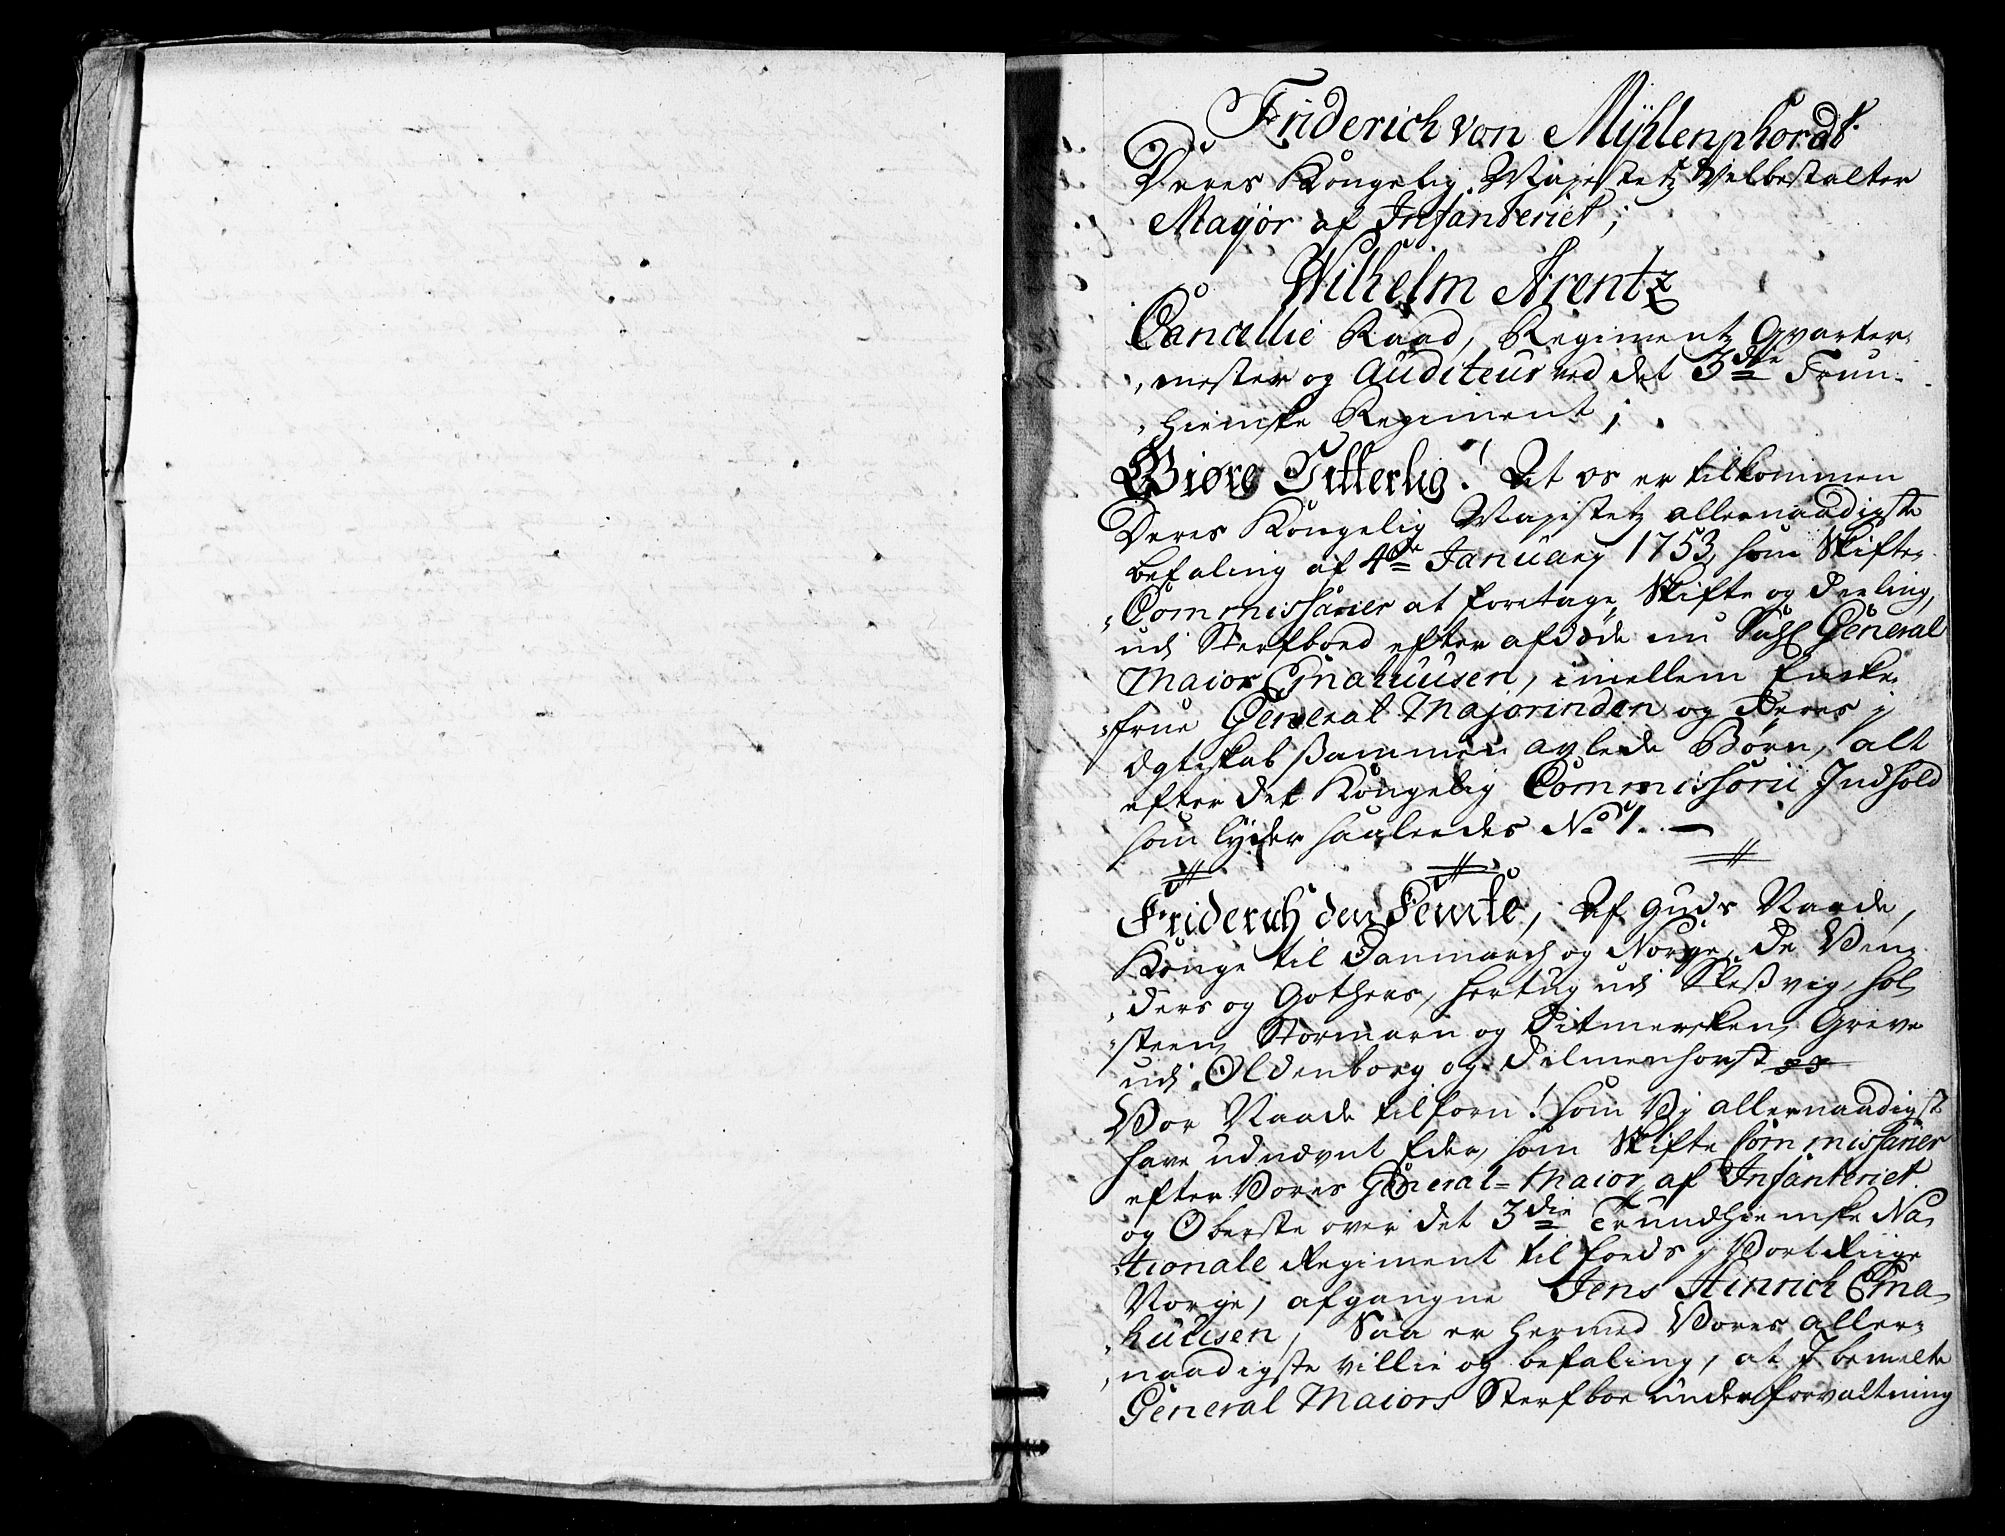 Friderich von Mÿhlenphordt
Deres Kongelig Majestetz Velbestalter
Mayor af Infanteriet;
Wilhelm Arentz
Cancellie Raad, Regimentz Qvarteer
mester og Auditeur ved det 3die Trun-
hiemske Regiment;
Giøre Vitterlig! At os er tilkommen
Deres Kongelig Majestetz allernaadigste
befaling af 4de January 1753, som Skifte
Commissarier at foretage Skifte og Deeling,
udi Sterfboed efter afdøde nu Sahl General
Maior Emahuusen, imellem Encke
frue General Majorinden og deres i
ægteskab sammen avlede Børn, alt
efter det Kongelig Commissorii Indhold
som lyder saaledes No 1. —
Friderich den Femte, Af Guds Naade,
Konge til Danmarch og Norge, de Ven
ders og Gothers, hertug udi Slesvig, Hol
steen, Stormarn og Ditmersken, Greve
udi Oldenborg og Delmenhorst
Vor Naade tilforn! som Vj allernaadigst
have udnævnt Eder, som Skifte Commissarier
efter Vores General-Maior af Infanteriet
og Oberste over det 3die Trundhiemske Na
tionale Regiment til foeds i Vort Riige
Norge, afgangne Jens Hinrich Ema
huusen, Saa er hermed Vores aller
naadigste villie og befaling, at I bemelte
General Maiors Sterfboe under forvaltning